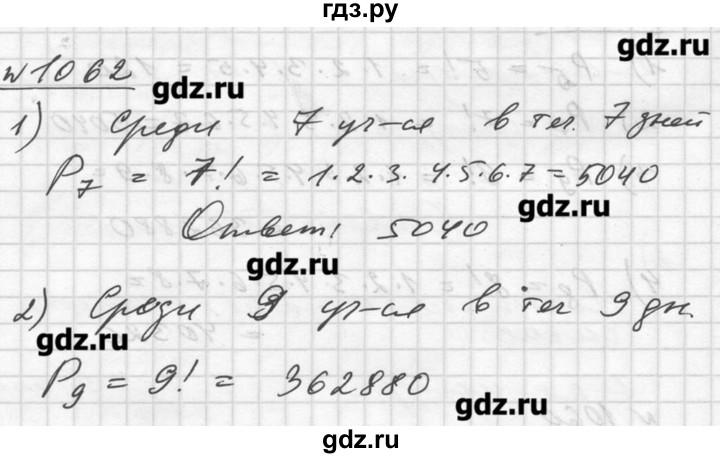 гдз.ру
№1062
gdz.ru
gdz.ru
1) Среди 7 уч-ся в теч. 7 дней
P₇ = 7! = 1·2·3·4·5·6·7 = 5040
gdz.ru
Ответ: 5040
gdz.ru
2) Среди 9 уч-ся в теч 9 дн.
gdz.ru
P₉ = 9! = 362880
gdz.ru
gdz.ru